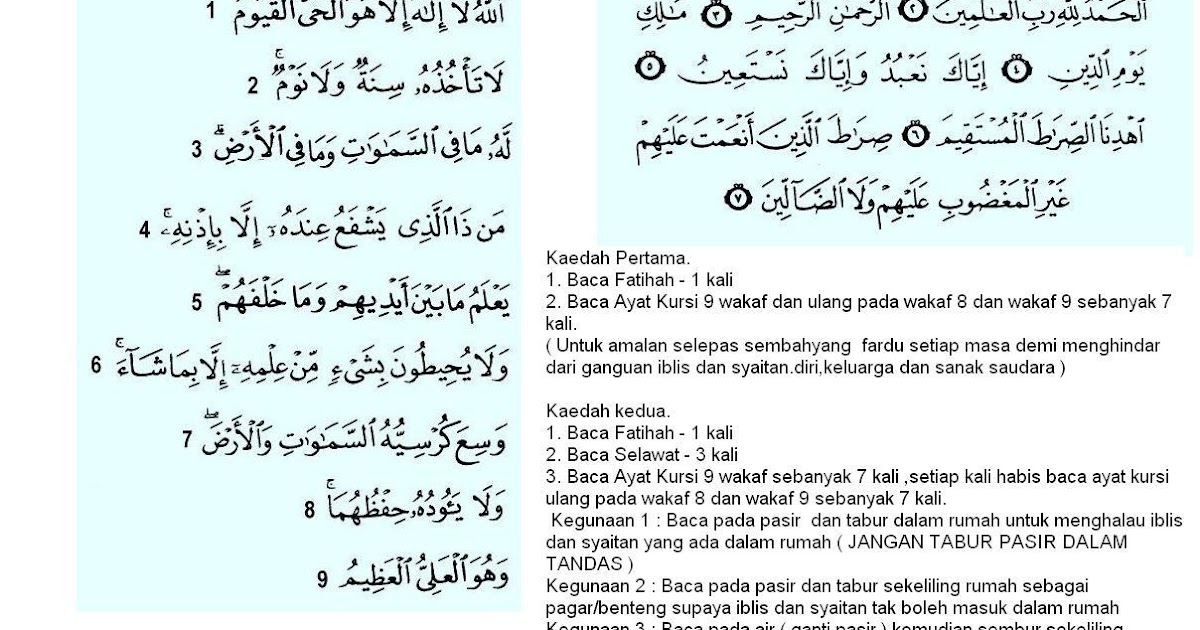 ٱللَّهُ لَآ إِلَٰهَ إِلَّا هُوَ ٱلْحَىُّ ٱلْقَيُّومُ 1
لَا تَأْخُذُهُۥ سِنَةٌ وَلَا نَوْمٌ ۚ 2
لَّهُۥ مَا فِى ٱلسَّمَٰوَٰتِ وَمَا فِى ٱلْأَرْضِ ۗ 3
مَن ذَا ٱلَّذِى يَشْفَعُ عِندَهُۥٓ إِلَّا بِإِذْنِهِۦ ۚ 4
يَعْلَمُ مَا بَيْنَ أَيْدِيهِمْ وَمَا خَلْفَهُمْ ۖ 5
وَلَا يُحِيطُونَ بِشَىْءٍ مِّنْ عِلْمِهِۦٓ إِلَّا بِمَا شَآءَ ۚ 6
وَسِعَ كُرْسِيُّهُ ٱلسَّمَٰوَٰتِ وَٱلْأَرْضَ ۖ 7
وَلَا يَـُٔودُهُۥ حِفْظُهُمَا ۚ 8
وَهُوَ ٱلْعَلِىُّ ٱلْعَظِيمُ 9
ٱلْحَمْدُ لِلَّهِ رَبِّ ٱلْعَٰلَمِينَ ٢ ٱلرَّحْمَٰنِ ٱلرَّحِيمِ ٣ مَٰلِكِ
يَوْمِ ٱلدِّينِ ٤ إِيَّاكَ نَعْبُدُ وَإِيَّاكَ نَسْتَعِينُ ٥
ٱهْدِنَا ٱلصِّرَٰطَ ٱلْمُسْتَقِيمَ ٦ صِرَٰطَ ٱلَّذِينَ أَنْعَمْتَ عَلَيْهِمْ
غَيْرِ ٱلْمَغْضُوبِ عَلَيْهِمْ وَلَا ٱلضَّآلِّينَ ٧
Kaedah Pertama.
1. Baca Fatihah - 1 kali
2. Baca Ayat Kursi 9 wakaf dan ulang pada wakaf 8 dan wakaf 9 sebanyak 7
kali.
( Untuk amalan selepas sembahyang  fardu setiap masa demi menghindar
dari ganguan iblis dan syaitan.diri,keluarga dan sanak saudara )
Kaedah kedua.
1. Baca Fatihah - 1 kali
2. Baca Selawat - 3 kali
3. Baca Ayat Kursi 9 wakaf sebanyak 7 kali ,setiap kali habis baca ayat kursi
ulang pada wakaf 8 dan wakaf 9 sebanyak 7 kali.
Kegunaan 1 : Baca pada pasir  dan tabur dalam rumah untuk menghalau iblis
dan syaitan yang ada dalam rumah ( JANGAN TABUR PASIR DALAM
TANDAS )
Kegunaan 2 : Baca pada pasir dan tabur sekeliling rumah sebagai
pagar/benteng supaya iblis dan syaitan tak boleh masuk dalam rumah
Kegunaan 3 : Baca pada air ( ganti pasir ) kemudian sembur sekeliling